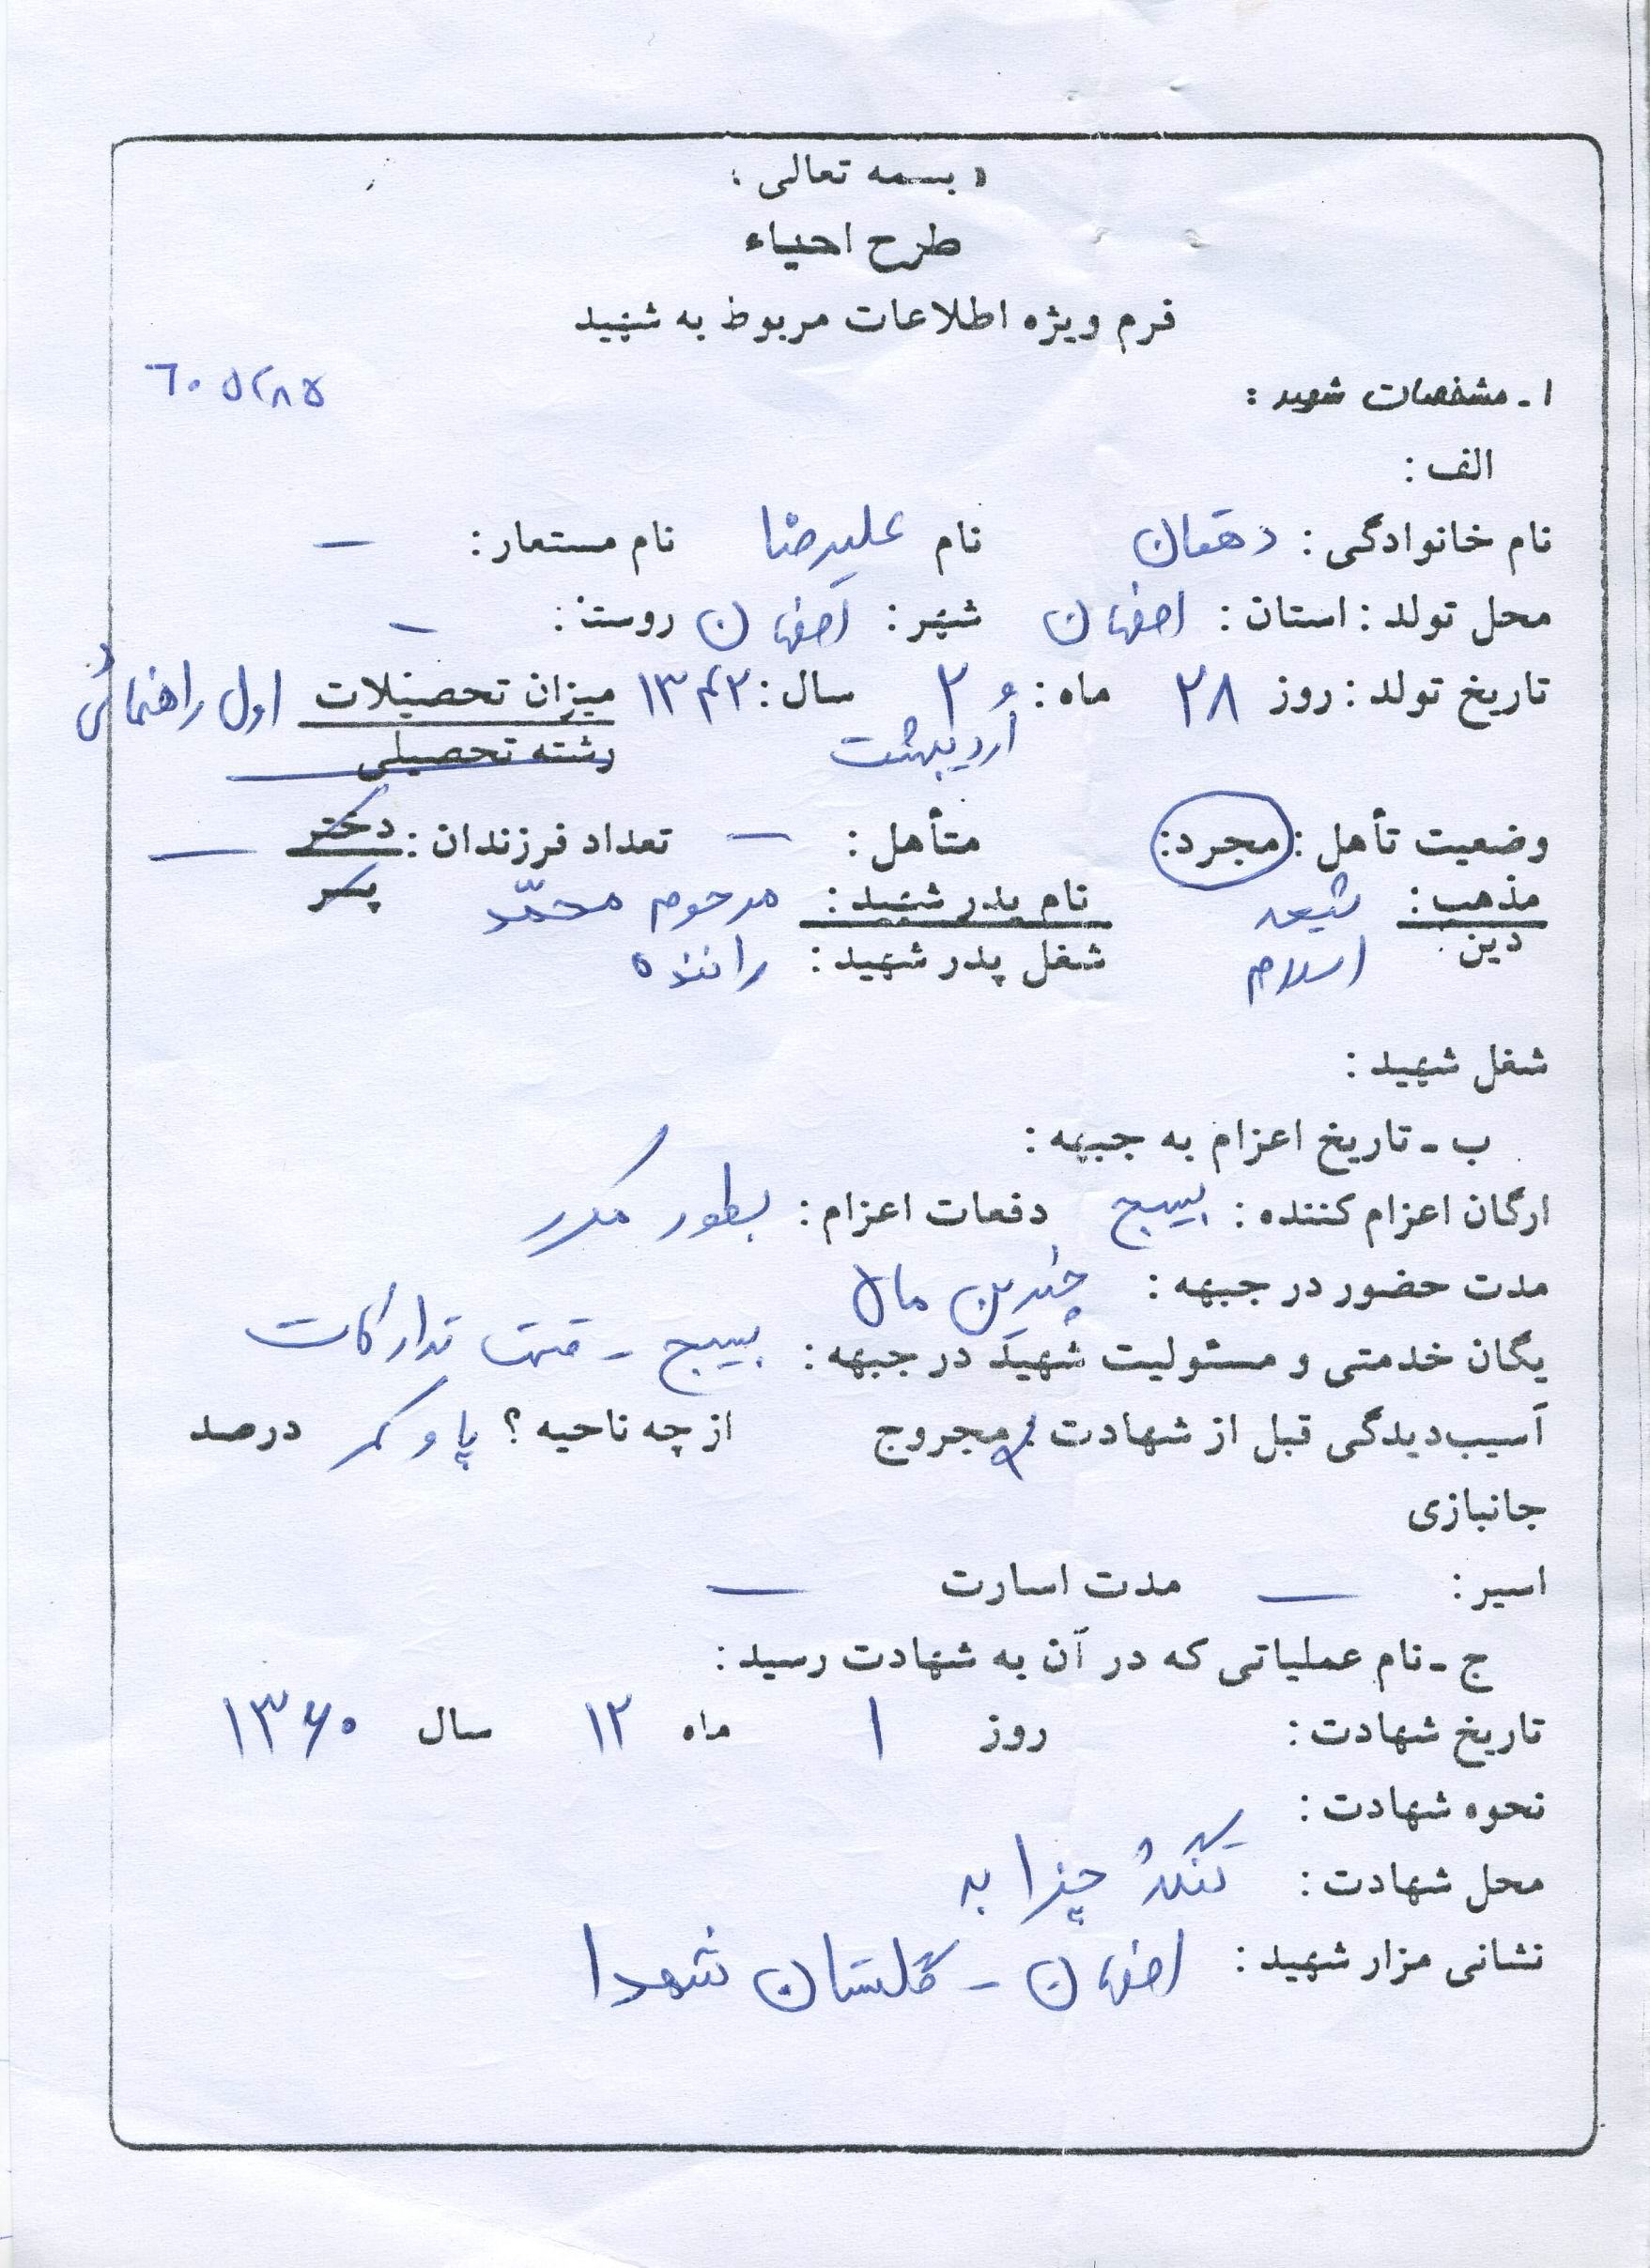 « بسمه تعالی »
طرح احیاء
فرم ویژه اطلاعات مربوط به شهید
۱ ـ مشخصات شهید :
الف :
نام خانوادگی : دهقان نام علیرضا نام مستعار : ـ
محل تولد : استان : اصفهان شهر : اصفهان روستا : ـ
تاریخ تولد : روز ۲۸ ماه : ۲ سال : ۱۳۴۲ میزان تحصیلات اول راهنمائی
اردیبهشت رشته تحصیلی
وضعیت تأهل : مجرد : متأهل : ـ تعداد فرزندان : دختر ـ
پسر
مذهب : شیعه نام پدر شهید : مرحوم محمّد
دین : اسلام شغل پدر شهید : راننده
شغل شهید :
ب ـ تاریخ اعزام به جبهه :
ارگان اعزام کننده : بسیج دفعات اعزام : بطور مکرر
مدت حضور در جبهه : چندین ماه
یگان خدمتی و مسئولیت شهید در جبهه : بسیج ـ قسمت تدارکات
آسیب‌دیدگی قبل از شهادت : مجروح از چه ناحیه ؟ پا و کمر درصد
جانبازی
اسیر : ـ مدت اسارت ـ
ج ـ نام عملیاتی که در آن به شهادت رسید :
تاریخ شهادت : روز ۱ ماه ۱۲ سال ۱۳۶۰
نحوه شهادت :
محل شهادت : تنگهٔ چزابه
نشانی مزار شهید : اصفهان ـ گلستان شهدا